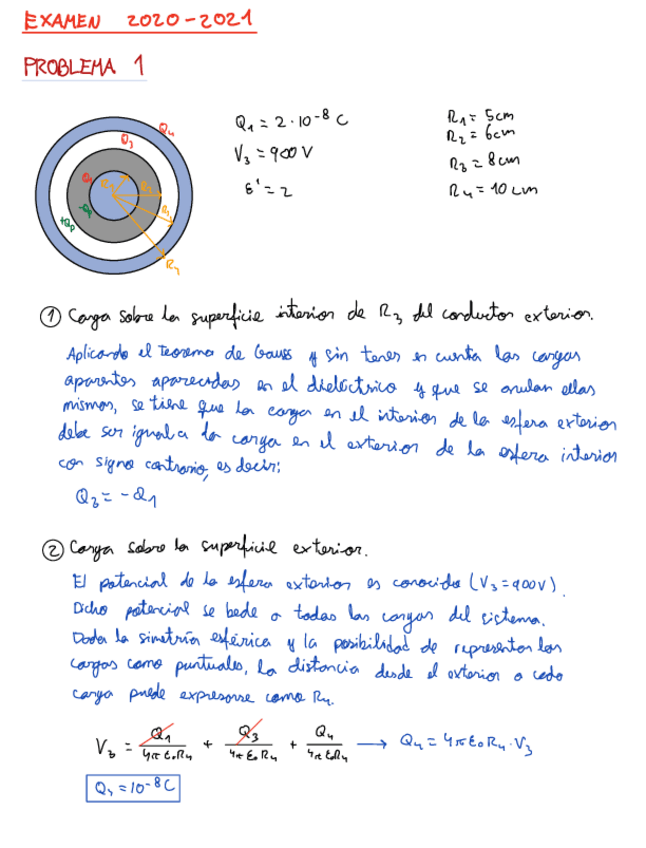 EXAMEN 2020-2021
PROBLEMA 1
Q4
Q3
Q1
R1
R2
-Qp
+Qp
R3
R4
Q1 = 2·10^-8 C
V3 = 900 V
ε' = 2
R1 = 5cm
R2 = 6cm
R3 = 8cm
R4 = 10 cm
① Carga sobre la superficie interior de R3 del conductor exterior.
Aplicando el teorema de Gauss y sin tener en cuenta las cargas
aparentes aparecidas en el dieléctrico y que se anulan ellas
mismas, se tiene que la carga en el interior de la esfera exterior
debe ser igual a la carga en el exterior de la esfera interior
con signo contrario, es decir:
Q3 = -Q1
② Carga sobre la superficie exterior.
El potencial de la esfera exterior es conocido (V3 = 900V).
Dicho potencial se debe a todas las cargas del sistema.
Dada la simetría esférica y la posibilidad de representar las
cargas como puntuales, la distancia desde el exterior a cada
carga puede expresarse como R4.
V3 = Q1/4πε0R4 + Q3/4πε0R4 + Q4/4πε0R4 → Q4 = 4πε0R4·V3
Q4 = 10^-8 C